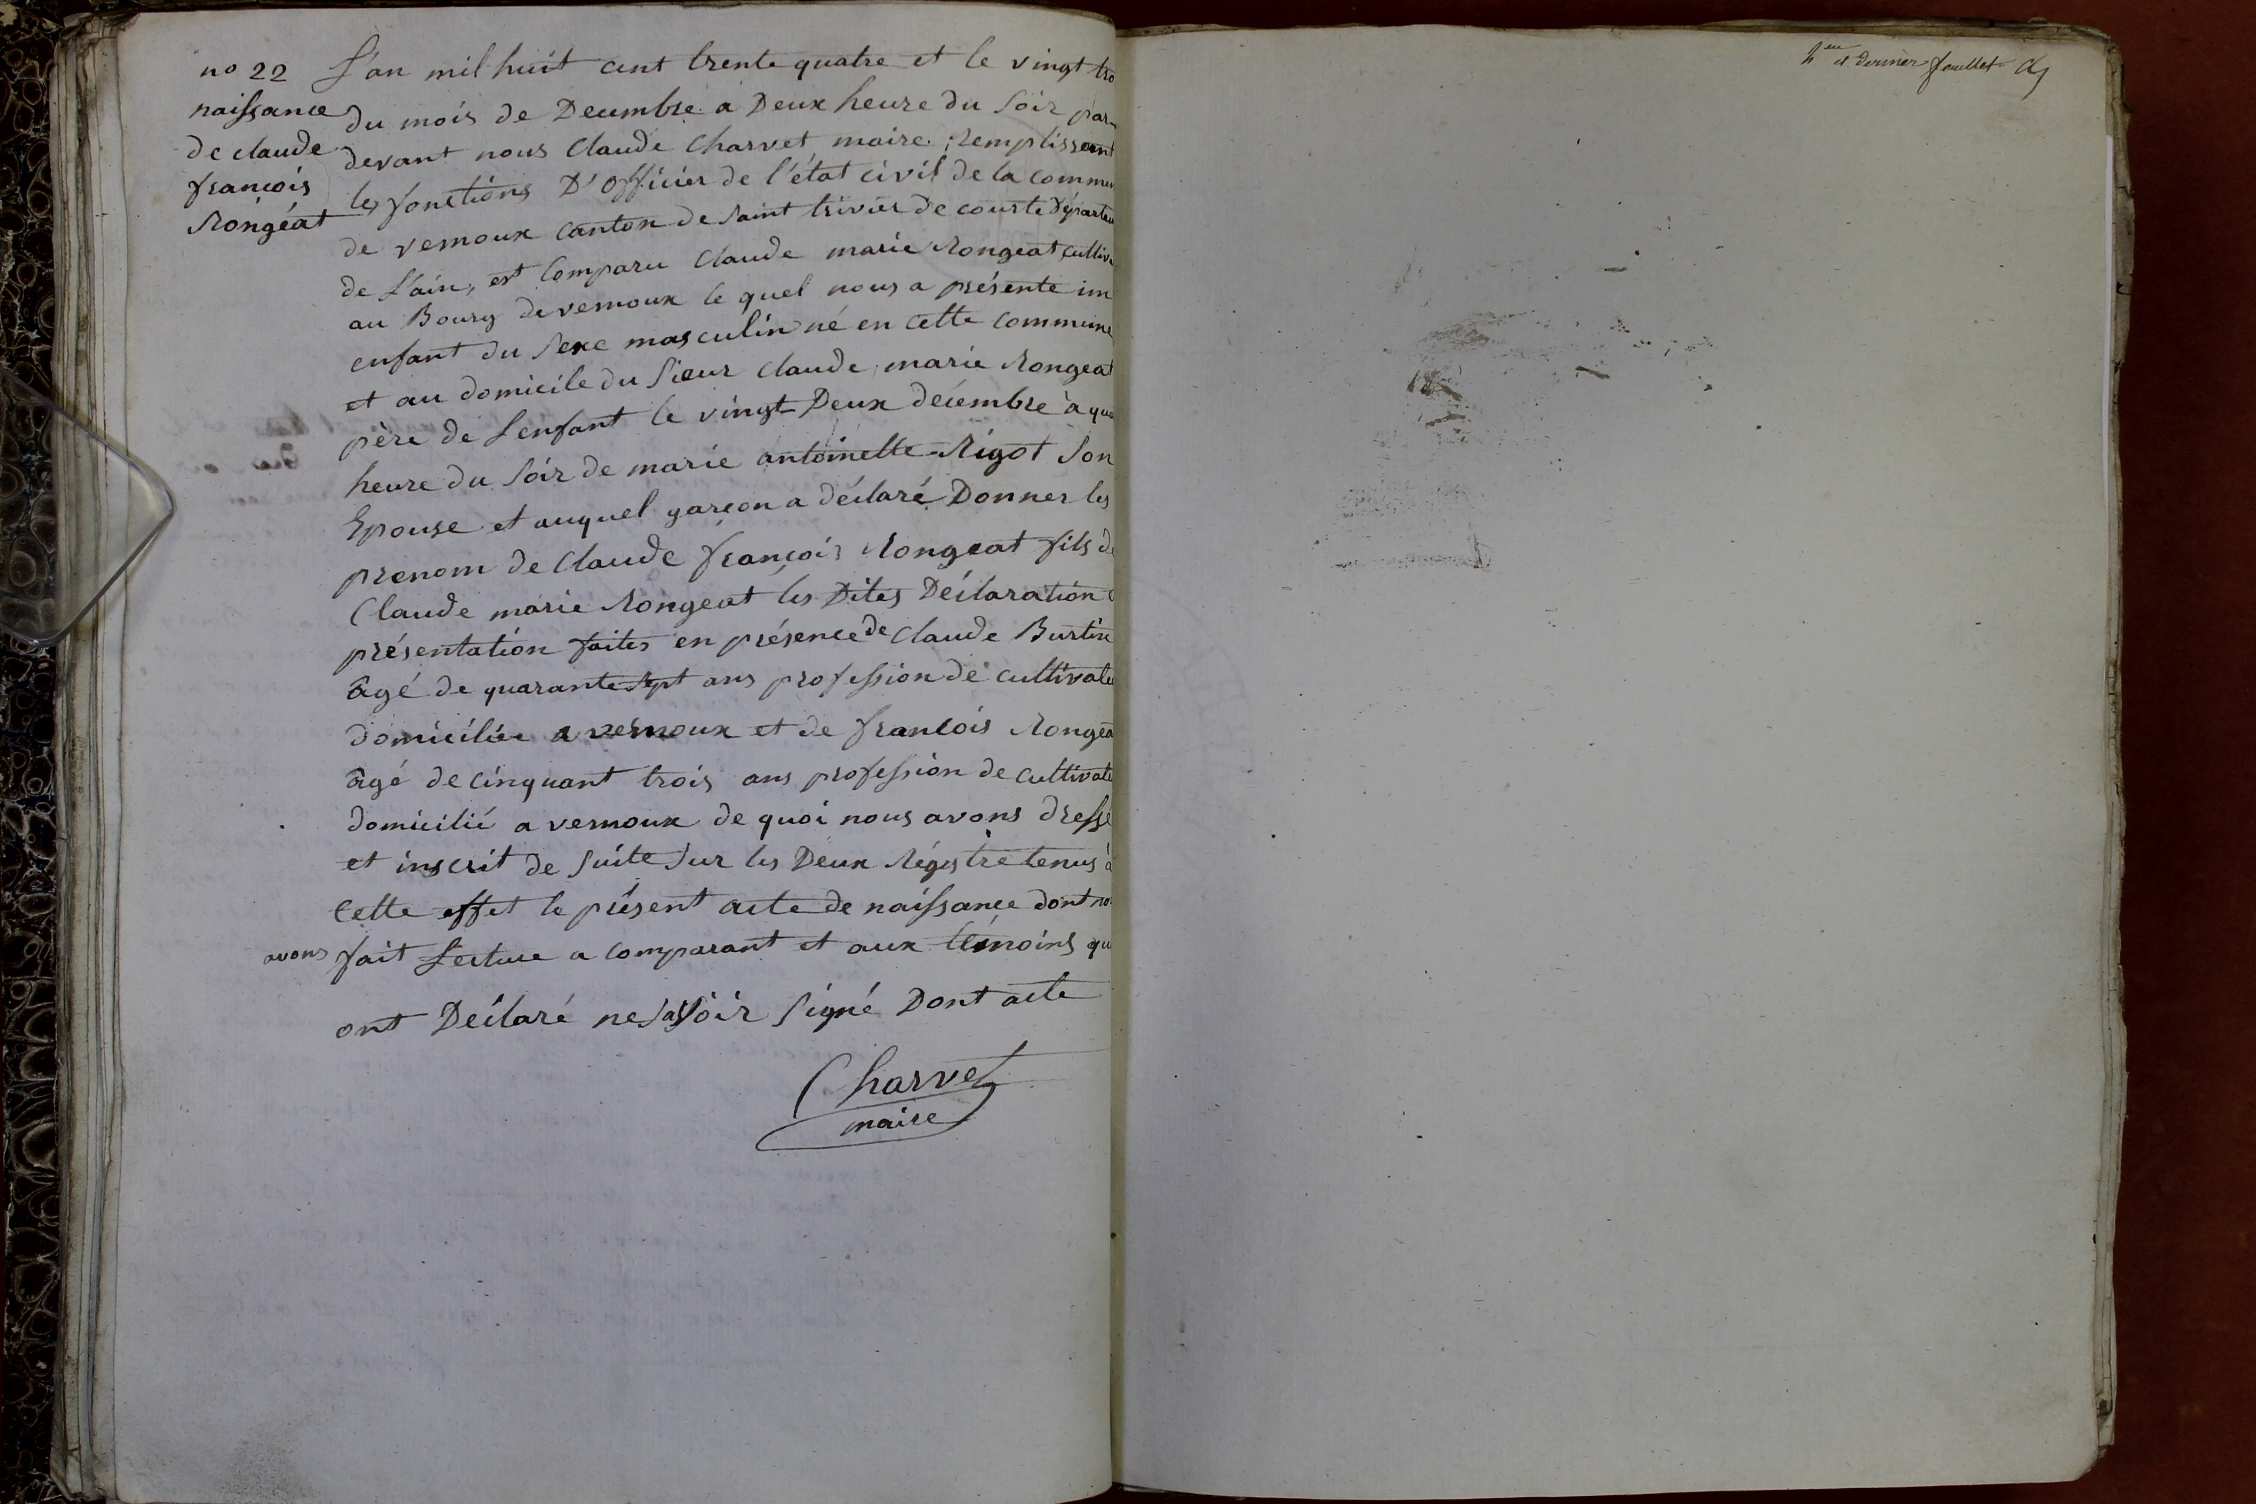 no 22
naissance
de claude
françois
Rongeat
L'an mil huit cent trente quatre et le vingt tro
du mois de Decembre à Deux heure du soir par
devant nous Claude Charvet, maire remplissant
les fonctions D'officier de l'état civil de la commun
de vernoux canton de saint trivier de courte Départem
de L'ain, est Comparu Claude marie Rongeat cultiva
au Bourg de vernoux le quel nous a présenté un
enfant du sexe masculin né en cette commune
et au domicile du sieur Claude marie Rongeat
père de L'enfant le vingt Deux décembre à qua
heure du soir de marie antoinette Rigot son
Epouse et auquel garçon a déclaré Donner les
prenom de Claude françois Rongeat fils de
Claude marie Rongeat les Dites Déclaration e
présentation faites en présence de Claude Burtin
âgé de quarante sept ans profession de cultivateu
domiciliée a vernoux et de francois Rongea
âgé de cinquant trois ans profession de cultivate
domicilié a vernoux de quoi nous avons dressé
et inscrit de suite sur les Deux Régistre tenus à
Cette effet le présent acte de naissance dont no
avons fait Lecture a comparant et aux témoins qu
ont Déclaré ne savoir signé Dont acte
Charvet
maire
et dernier feuillet